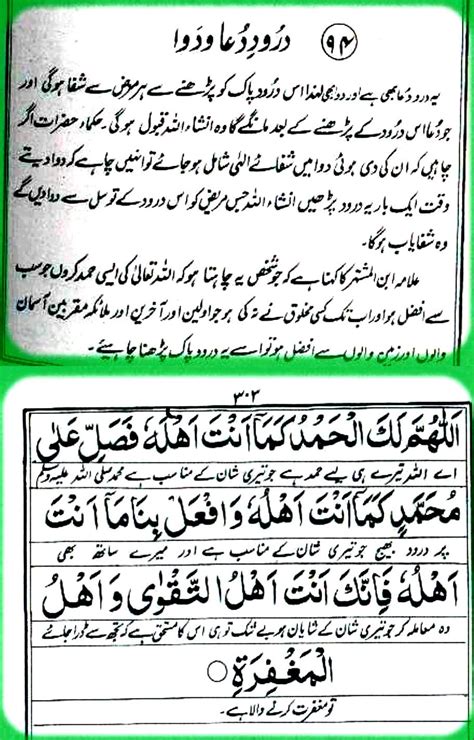 ۹۴ درودِ دعا و دوا
یہ درود دعا بھی ہے اور دوا بھی لہٰذا اس درود پاک کو پڑھنے سے ہر مرض سے شفا ہوگی اور
جو دعا اس درود کے پڑھنے کے بعد مانگے گا وہ انشاء اللہ قبول ہوگی۔ حکماء حضرات اگر
چاہیں کہ ان کی دی ہوئی دوا میں شفائے الٰہی شامل ہو جائے تو انہیں چاہیے کہ دوا دیتے
وقت ایک بار یہ درود پڑھیں انشاء اللہ جس مریض کو اس درود کے توسل سے دوا دیں گے
وہ شفا یاب ہوگا۔
علامہ ابن المشتہر کا کہنا ہے کہ جو شخص یہ چاہتا ہو کہ اللہ تعالیٰ کی ایسی حمد کروں جو سب
سے افضل ہو اور اب تک کسی مخلوق نے نہ کی ہو جو اولین اور آخرین اور ملائکہ مقربین آسمان
والوں اور زمین والوں سے افضل ہو تو اسے یہ درود پاک پڑھنا چاہیے۔
۳۰۳
اَللّٰهُمَّ لَكَ الْحَمْدُ كَمَآ اَنْتَ اَهْلُهٗ فَصَلِّ عَلٰى
اے اللہ تیرے ہی لیے حمد ہے جو تیری شان کے مناسب ہے محمد صلی اللہ علیہ وسلم
مُحَمَّدٍ كَمَآ اَنْتَ اَهْلُهٗ وَافْعَلْ بِنَا مَآ اَنْتَ
پر درود بھیج جو تیری شان کے مناسب ہے اور میرے ساتھ بھی
اَهْلُهٗ فَاِنَّكَ اَنْتَ اَهْلُ التَّقْوٰى وَ اَهْلُ
وہ معاملہ کر جو تیری شان کے شایان ہو بے شک تو ہی اس کا مستحق ہے کہ تجھ سے ڈرا جائے
الْمَغْفِرَةِ
تو مغفرت کرنے والا ہے۔